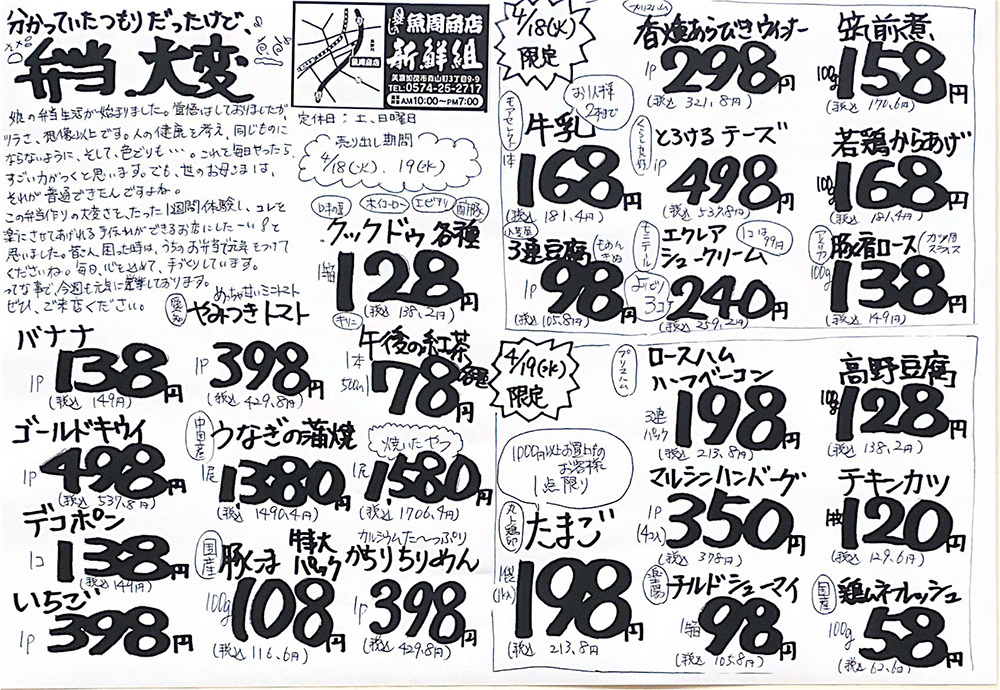 分かっていたつもりだったけど、
弁当、大変
娘の弁当生活が始まりました。覚悟はしておりましたが、
ツラさ、想像以上です。人の健康を考え、同じものに
ならないように、そして、色どりも・・・。これを毎日やったら
すごい力がつくと思います。でも、世のお母さまは、
それが普通できたんですよね。
この弁当作りの大変さを、たった1週間体験し、コレを
楽にさせてあげれる手伝いができるお店にしたーい!!と
思いました。皆さん、困った時は、うちのお弁当
くださいね。毎日、心を込めて、手づくりしています。
ってな事で、今週も元気に営業しております。
ぜひ、ご来店ください。
魚周商店
新鮮組
美濃加茂市森山町3丁目9-9
TEL:0574-25-2717
AM10:00〜PM7:00
魚周商店
定休日:土、日曜日
売り出し期間
4/18(火)、19(水)
回鍋肉
ホイコーロー
エビチリ
酢豚
クックドゥ各種
1箱
128円
(税込 138.2円)
愛知
めっちゃ甘いミニトマト
やみつきトマト
1P
398円
(税込 429.8円)
キリン
午後の紅茶
各種
1本
500ml
78円
バナナ
1P
138円
(税込 149円)
ゴールドキウイ
1P
498円
(税込 537.8円)
中国産
うなぎの蒲焼
1尾
1380円
(税込 1490.4円)
焼いたやつ
1尾
1580円
(税込 1706.4円)
デコポン
1コ
138円
(税込 149円)
いちご
1P
398円
国産
豚こま
特大パック
100g
108円
(税込 116.6円)
カルシウムたーっぷり
かちりちりめん
1P
398円
(税込 429.8円)
4/18(火)
限定
プリマハム
香燻あらびきウインナー
1P
298円
(税込 321.8円)
筑前煮
100g
158円
(税込 170.6円)
お1人様
2本まで
牛乳
1本
168円
(税込 181.4円)
くらし良好
とろけるチーズ
1P
498円
(税込 537.8円)
若鶏からあげ
100g
168円
(税込 181.4円)
3連豆腐
もめん
きぬ
1P
98円
(税込 105.8円)
モンテール
エクレア
シュークリーム
1コは99円
よりどり
3コ
240円
(税込 259.2円)
アメリカ
豚肩ロース
カツ用
スライス
100g
138円
(税込 149円)
4/19(水)
限定
プリマハム
ロースハム
ハーフベーコン
3連
パック
198円
(税込 213.8円)
高野豆腐
100g
128円
(税込 138.2円)
1000円以上お買上げの
お客様
1点限り
たまご
198円
(税込 213.8円)
マルシンハンバーグ
1P
(4コ入)
350円
(税込 378円)
チキンカツ
1枚
120円
(税込 129.6円)
チルドシューマイ
1箱
98円
(税込 105.8円)
国産
鶏ムネフレッシュ
100g
58円
(税込 62.6円)